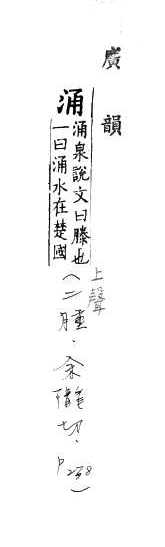 廣韻
涌
涌泉說文曰滕也
一曰涌水在楚國
上聲
(二腫.余隴切.P238)